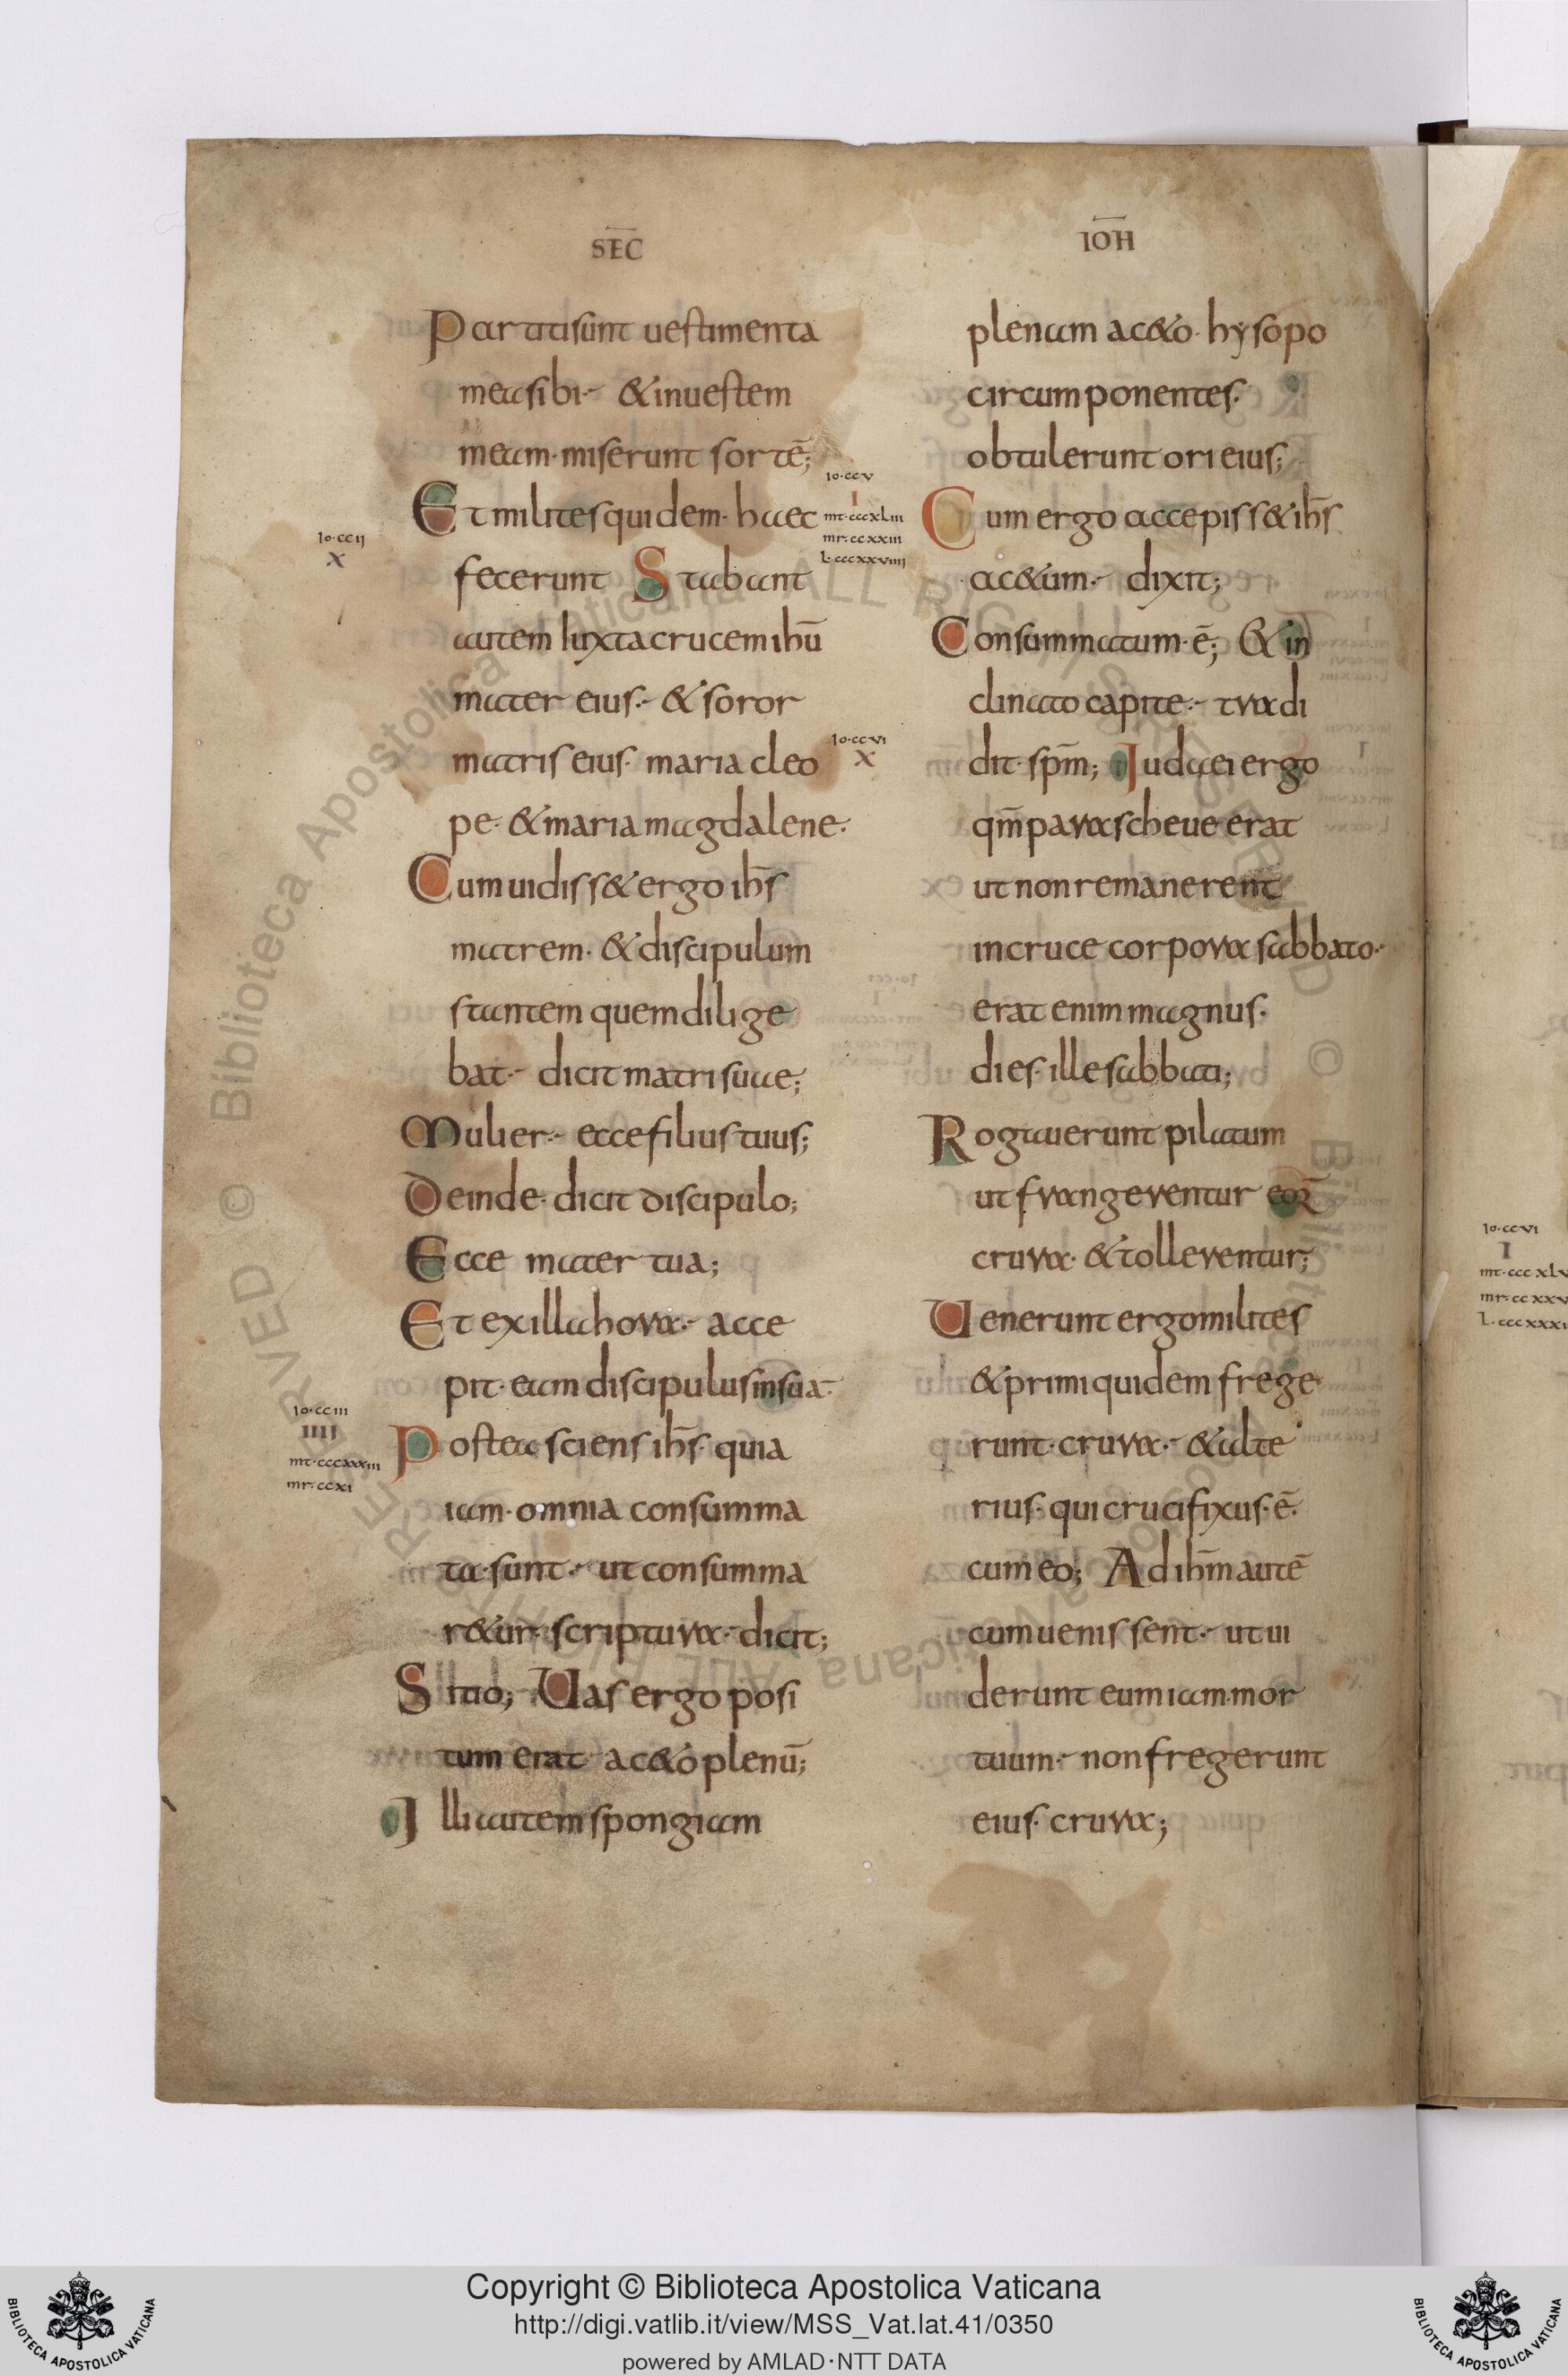 SEC̅
IO̅H
Partiti sunt uestimenta
mea sibi·- & in uestem
meam· miserunt sorte̅;
Et milites quidem· haec
fecerunt Stabant
autem Iuxta crucem ihu̅
mater eius·- & soror
matris eius· maria cleo
pe· & maria magdalene·
Cum uidiss& ergo ih̅s
matrem· & discipulum
stantem quem dilige
bat·- dicit matri suae;
Mulier·- ecce filius tuus;
Deinde· dicit discipulo;
Ecce mater tua;
Et ex illa hora·- acce
pit· eam discipulus in sua·
Postea sciens ih̅s· quia
iam· omnia consumma
ta· sunt·- ut consumma
r&ur· scriptura·- dicit;
Sitio; Uas ergo posi
tum erat· ac&o plenu̅;
Illi autem spongiam
plenam ac&o· hysopo
circumponentes·
obtulerunt ori eius;
Cum ergo accepiss& ih̅s
ac&um·- dixit;
Consummatum· e̅; & in
clinato capite·- tradi
dit· sp̅m; Iudaei ergo
qm̅ parascheue erat
ut non remanerent
in cruce corpora sabbato·
erat enim magnus·
dies· ille sabbati;
Rogauerunt pilatum
ut frangerentur eoꝝ
crura· & tollerentur;
Uenerunt ergo milites
& primi quidem frege
runt· crura·- & alte
rius· qui crucifixus· e̅·
cum eo; Ad ihm̅ aute̅
cum uenissent·- ut ui
derunt eum iam· mor
tuum·- non fregerunt
eius· crura;
Io·ccii
x
Io·cciii
IIII
mt·cccxxxiii
mr·ccxi
Io·ccv
I
mt·cccxliii
mr·ccxxiii
L·cccxxviiii
Io·ccvi
x
Io·ccvi
I
mt·cccxlv
mr·ccxxv
L·cccxxxi
© Biblioteca Apostolica Vaticana ALL RIGHTS RESERVED
Copyright © Biblioteca Apostolica Vaticana
http://digi.vatlib.it/view/MSS_Vat.lat.41/0350
powered by AMLAD・NTT DATA
BIBLIOTECA APOSTOLICA VATICANA
BIBLIOTECA APOSTOLICA VATICANA